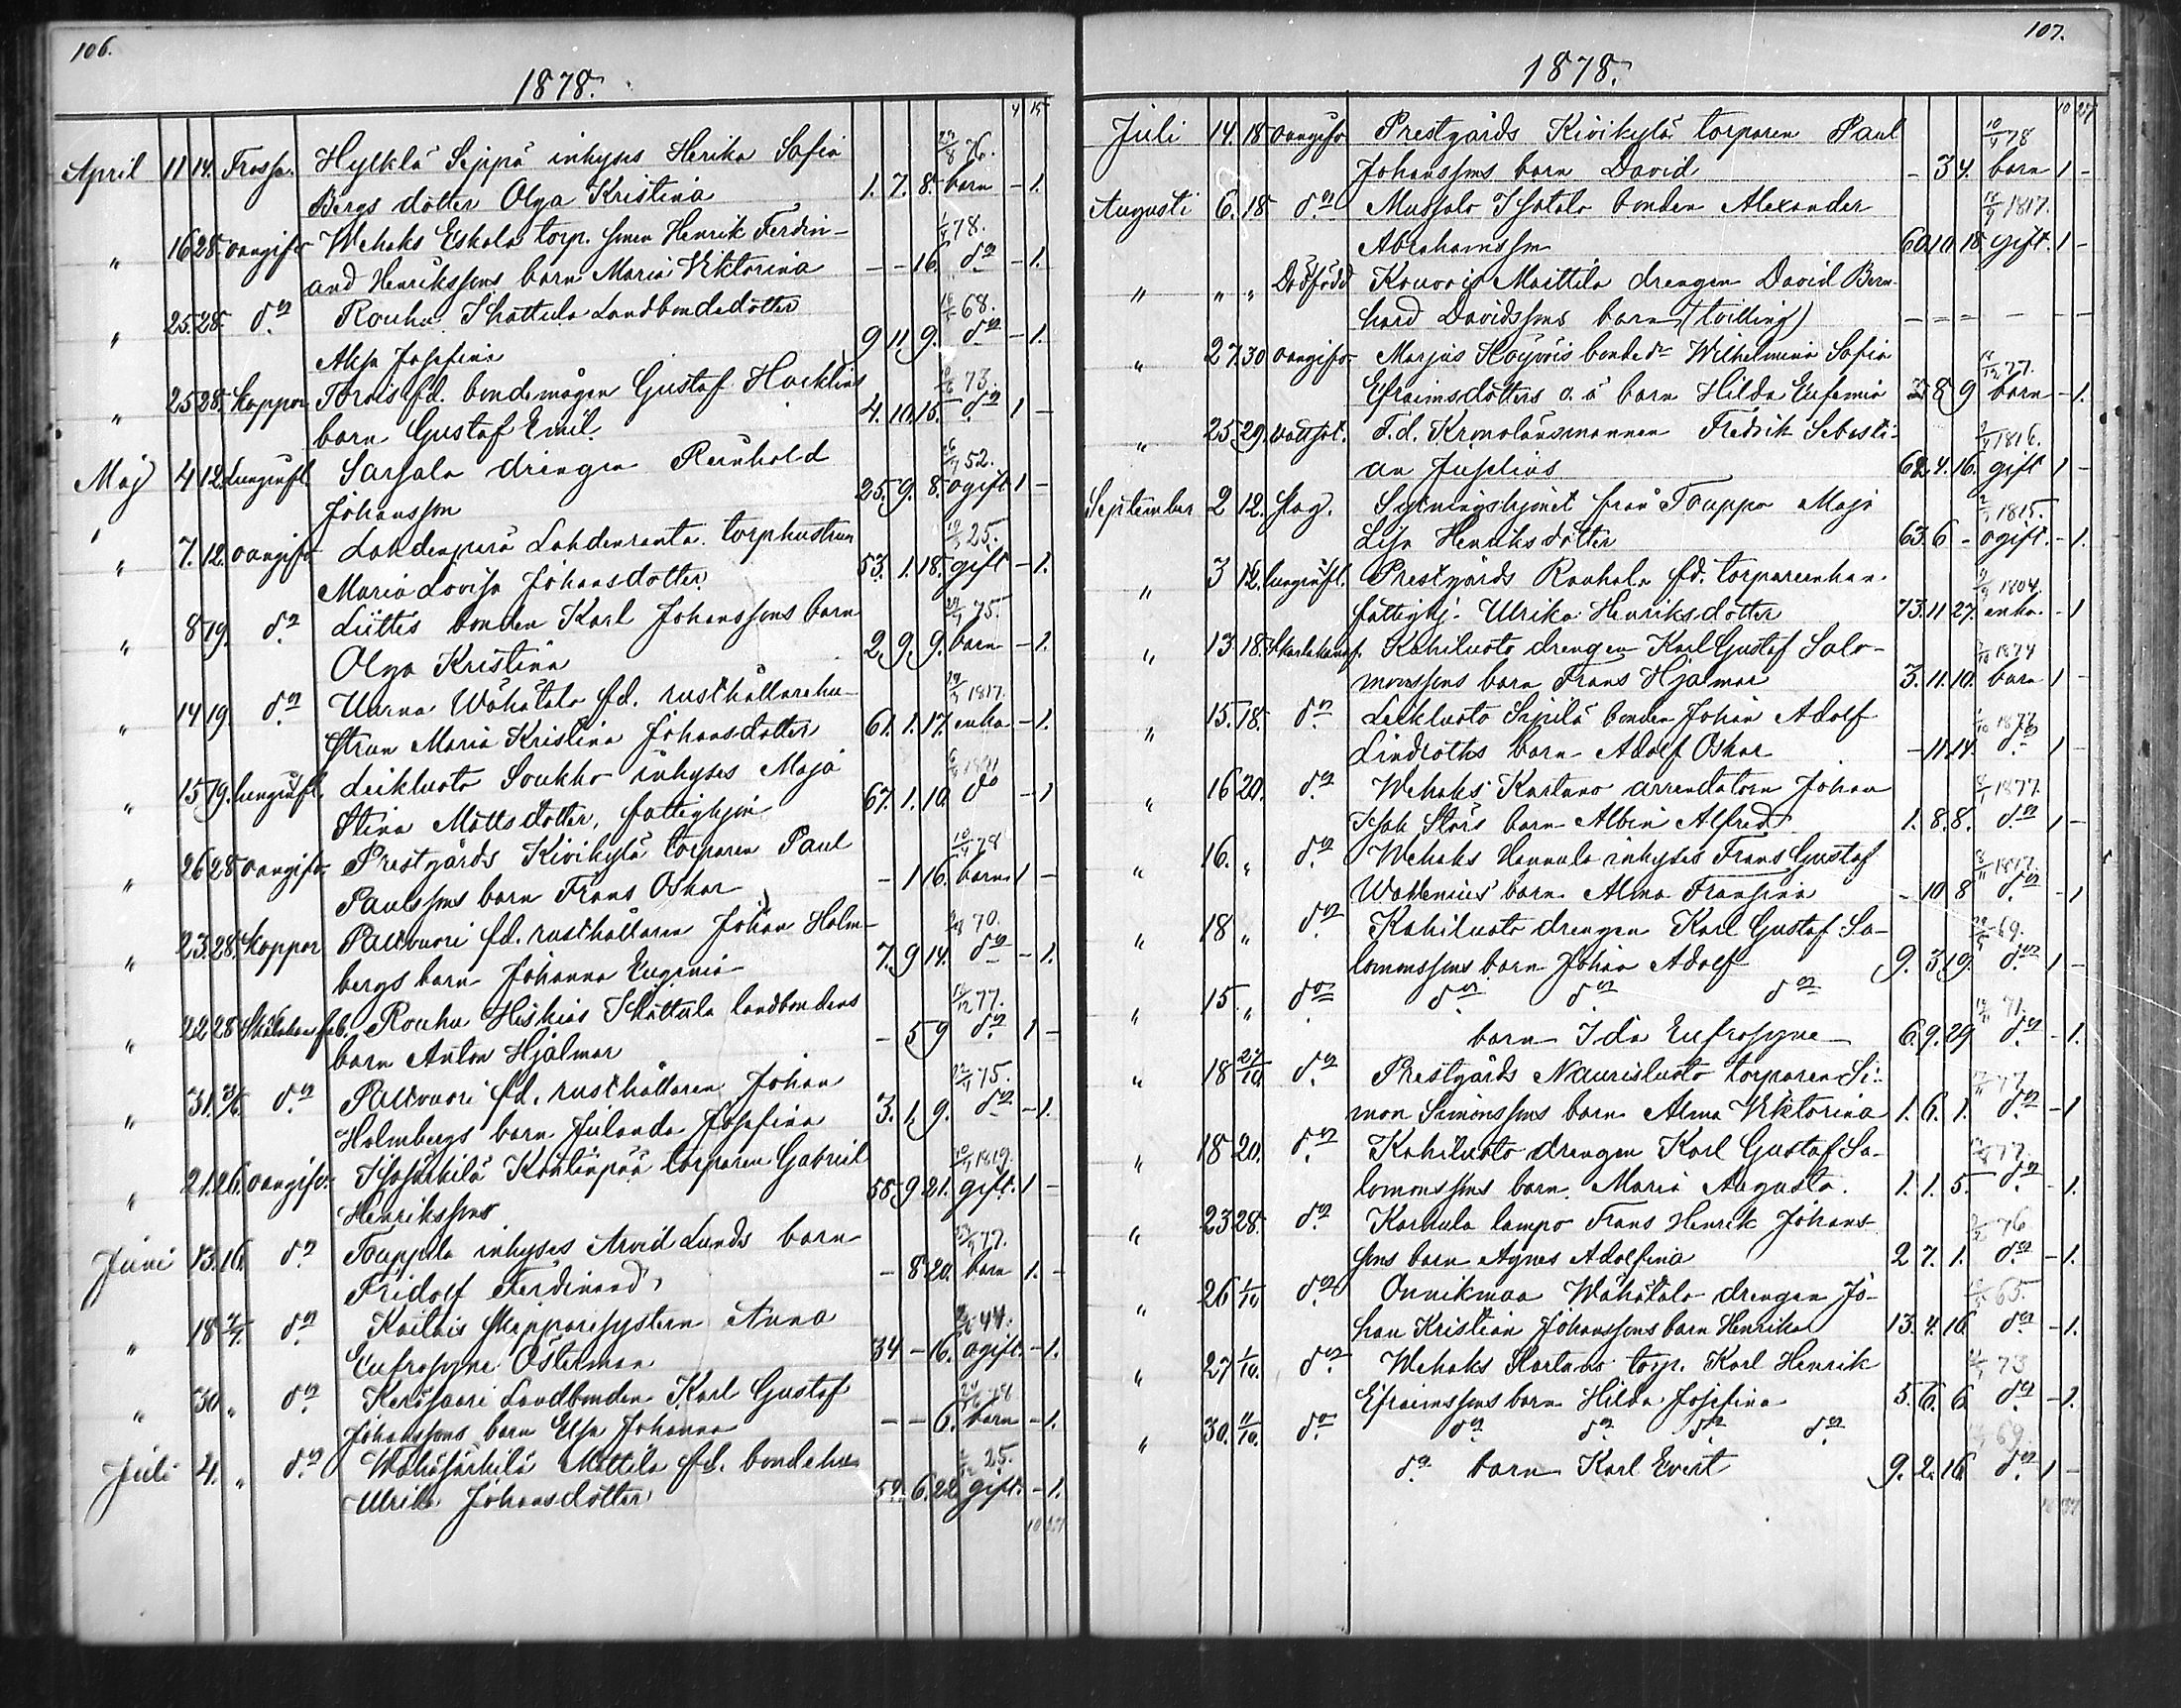 106.
1878.
4 15
April 11 14. Frossa. Hylkilä Seppä inhyses Herika Sofia 29/8 76.
Bergs dotter Olga Kristina 1. 7. 8. barn - 1.
" 16 28. oangifv. Wehaks Eskola torp. sonen Henrik Ferdin- 78.
and Henrikssons barn Maria Viktorina - - 16. do - 1.
" 25 28. do Rouhu Skattula Landbondedotter 16/5 68.
Alexa Josefina 9 11 9. do - 1.
" 25 28. Koppor Torais fd. bondemågen Gustaf Hacklins 73.
barn Gustaf Emil. 4. 10. 15. do 1 -
Maj 4 12. Lunginfl. Sarsala drängen Reinhold 52.
Johansson 25. 9. 8. ogift 1 -
" 7. 12. oangifv. Lahdenperä Lahdenranta torphustrun 19/3 25.
Maria Lovisa Johansdotter 53. 1. 18. gift - 1.
" 8 19. do Liittes bonden Karl Johanssons barn 75.
Olga Kristina 2. 9. 9. barn - 1.
" 14 19. do Uarna Wähätalo fd. rusthållarehu- 1817.
strun Maria Kristina Johansdotter 61. 1. 17. enka - 1.
" 15 19. lunginfl. Leikluoto Soukko inhyses Maja
Stina Mattsdotter, fattighjon 67. 1. 10. do - 1
" 26 28 oangifv. Prestgårds Kivikylä torparen Paul 10/4 78
Paulssons barn Frans Oskar - 1 16. barn 1 -
" 23. 28. Koppor Palovuori fd. rusthållaren Johan Holm- 70.
bergs barn Johanna Eugenia 7. 9 14. do - 1.
" 22 28 Rouhu Hiskias Skattula landbondens 13/12 77.
barn Anton Hjalmar - 5 9 do 1 -
" 31. 3/6. do Palovuori fd. rusthållaren Johan 22/4 75.
Holmbergs barn Julanda Josefina 3. 1. 9. do - 1.
" 21. 26. oangifv. Isosärkilä Kontinpää torparen Gabriel 1819.
Henriksson 58. 9 21. gift. 1 -
Juni 13. 16. do Tauppila inhyses Arvid Lunds barn 23/9 77.
Fridolf Ferdinand - 8 20. barn 1. -
" 18 2/7. do Kailais skepparesystern Anna 2/6 44.
Eufrosyne Österman 34 - 16. ogift. - 1.
" 30 " do Kerösaari Landbonden Karl Gustaf 24/6 78
Johanssons barn Elsa Johanna - - 6. barn - 1.
Juli 4. " do Wähäsärkilä Mattila fd. bondehu 25.
Ulrika Johansdotter 52. 6. 22. gift. - 1.
10 27
107.
1878.
10 27
Juli 14. 18 oangifv. Prestgårds Kivikylä torparen Paul 10/4 78
Johanssons barn David - 3 4. barn 1 -
Augusti 6. 18. do Mussalo Isotalo bonden Alexander 1817.
Abrahamsson 60. 10. 18. gift. 1 -
" " " Dödfödd Kouvois Maittila drengen David Bern-
hard Davidssons barn (tvilling) - - - - - -
" 27. 30 oangifv. Marjus Köyvöis bondedr Wilhelmina Sofia 18/12 77.
Efraimsdotters o. ä barn Hilda Eufemia 8 9 barn - 1.
" 25. 29. Vattsot. F.d. Kronolänsmannen Fredrik Sebasti- 9/4 1816.
an Juselius 62. 4. 16. gift 1 -
September 2 12. slag. Sytningshjonet från Tauppa Maja 1815.
Lisa Henriksdotter 63. 6 - ogift. - 1.
" 3 12. lunginfl. Prestgårds Rauhala fd. torpareenkan 1804.
fattighj. Ulrika Henriksdotter 73. 11 27. enka. - 1
" 13. 18. Skarlakansf. Kahiluoto drengen Karl Gustaf Salo- 1874
monssons barn Frans Hjalmar 3. 11. 10. barn 1 -
" 15. 18. do Leikluoto Sipilä bonden Johan Adolf 1877
Lindroths barn Adolf Oskar - 11 14. do 1 -
" 16 20. do Wehaks Kartano arrendatorn Johan 8/1 1877.
Isak Stårs barn Albin Alfred 1. 8. 8. do 1 -
" 16. " do Wehaks Hannula inhyses Frans Gustaf 8/11 1817.
Wahlenius barn Alma Fransina - 10 8 do - 1
" 18 " do Kahiluoto drengen Karl Gustaf Sa- 69.
lomonssons barn Johan Adolf 9. 3. 19. do 1 -
" 15. " do do do do 71.
barn Ida Eufrosyne 6. 9. 29 do - 1.
" 18 27/10. do Prestgårds Naurisluoto torparen Si- 77
mon Simonssons barn Alma Viktorina 1. 6. 1. do - 1
" 18 20. do Kahiluoto drengen Karl Gustaf Sa- 77.
lomonssons barn Maria Augusta. 1. 1. 5. do - 1.
" 23 28. do Karhula lampo Frans Henrik Johans- 76.
sons barn Agnes Adolfina 2 7. 1. do - 1.
" 26 1/10 do Onnikmaa Wähätalo drengen Jo- 65.
han Kristian Johanssons barn Henrika 13. 4. 16. do - 1.
" 27 1/10. do Wehaks Kartano torp. Karl Henrik 73
Efraimssons barn Hilda Josefina 5. 6. 6. do - 1.
" 30. 11/10. do do do do do 69.
do barn Karl Evert 9. 2. 16. do 1 -